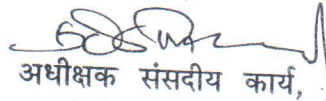 अधीक्षक संसदीय कार्य,